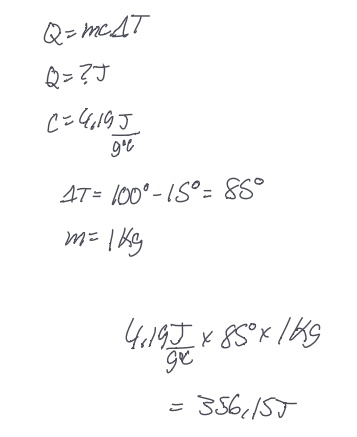 Q = mcΔT
Q = ? J
C = 4,19 J
g°c
ΔT = 100° - 15° = 85°
m = 1 Kg
4,19J x 85° x 1 Kg
g°c
= 356,15J